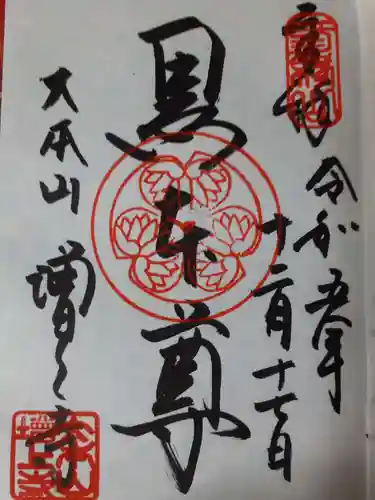 奉拝
令和五年
十二月十七日
黒本尊
大本山 増上寺